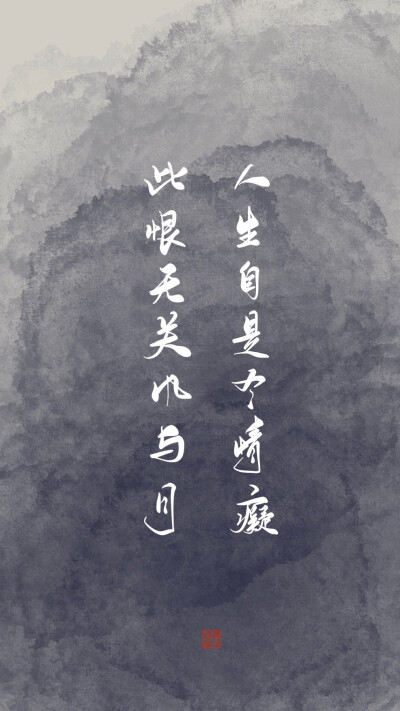 人生自是有情癡
此恨无关风与月